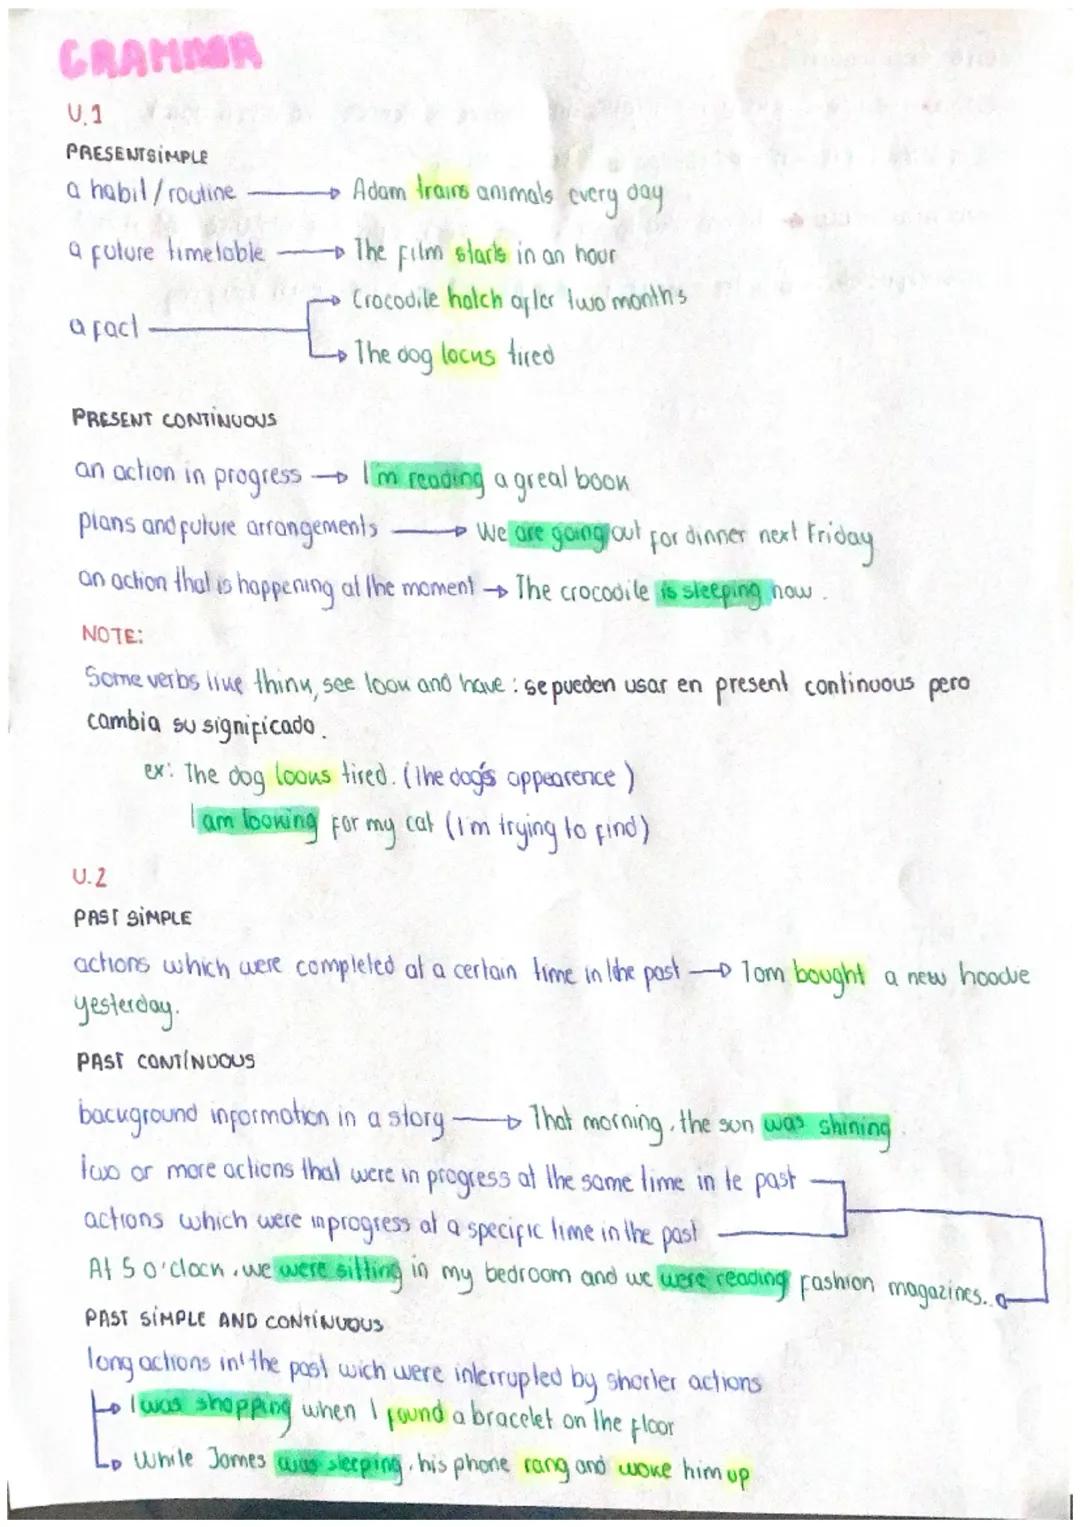 GRAMMAR
U.1
PRESENT SIMPLE
a habit/routine → Adam trains animals every day
a future timetable → The film starts in an hour
→ Crocodile hatch after two month's
a fact
→ The dog looks tired
PRESENT CONTINUOUS
an action in progress → I'm reading a great book
plans and future arrangements → We are going out for dinner next Friday
an action that is happening at the moment → The crocodile is sleeping now.
NOTE:
Some verbs like think, see look and have: se pueden usar en present continuous pero
cambia su significado.
ex: The dog looks tired. (the dog's appearence)
I am looking for my cat (I'm trying to find)
U.2
PAST SIMPLE
actions which were completed at a certain time in the past → Tom bought a new hoodie
yesterday.
PAST CONTINUOUS
background information in a story → That morning, the sun was shining.
two or more actions that were in progress at the same time in te past
actions which were in progress at a specific time in the past
At 5 o'clock, we were sitting in my bedroom and we were reading fashion magazines..
PAST SIMPLE AND CONTINUOUS
long actions in the past wich were interrupted by shorter actions
→ I was shopping when I found a bracelet on the floor
→ While James was sleeping, his phone rang and woke him up